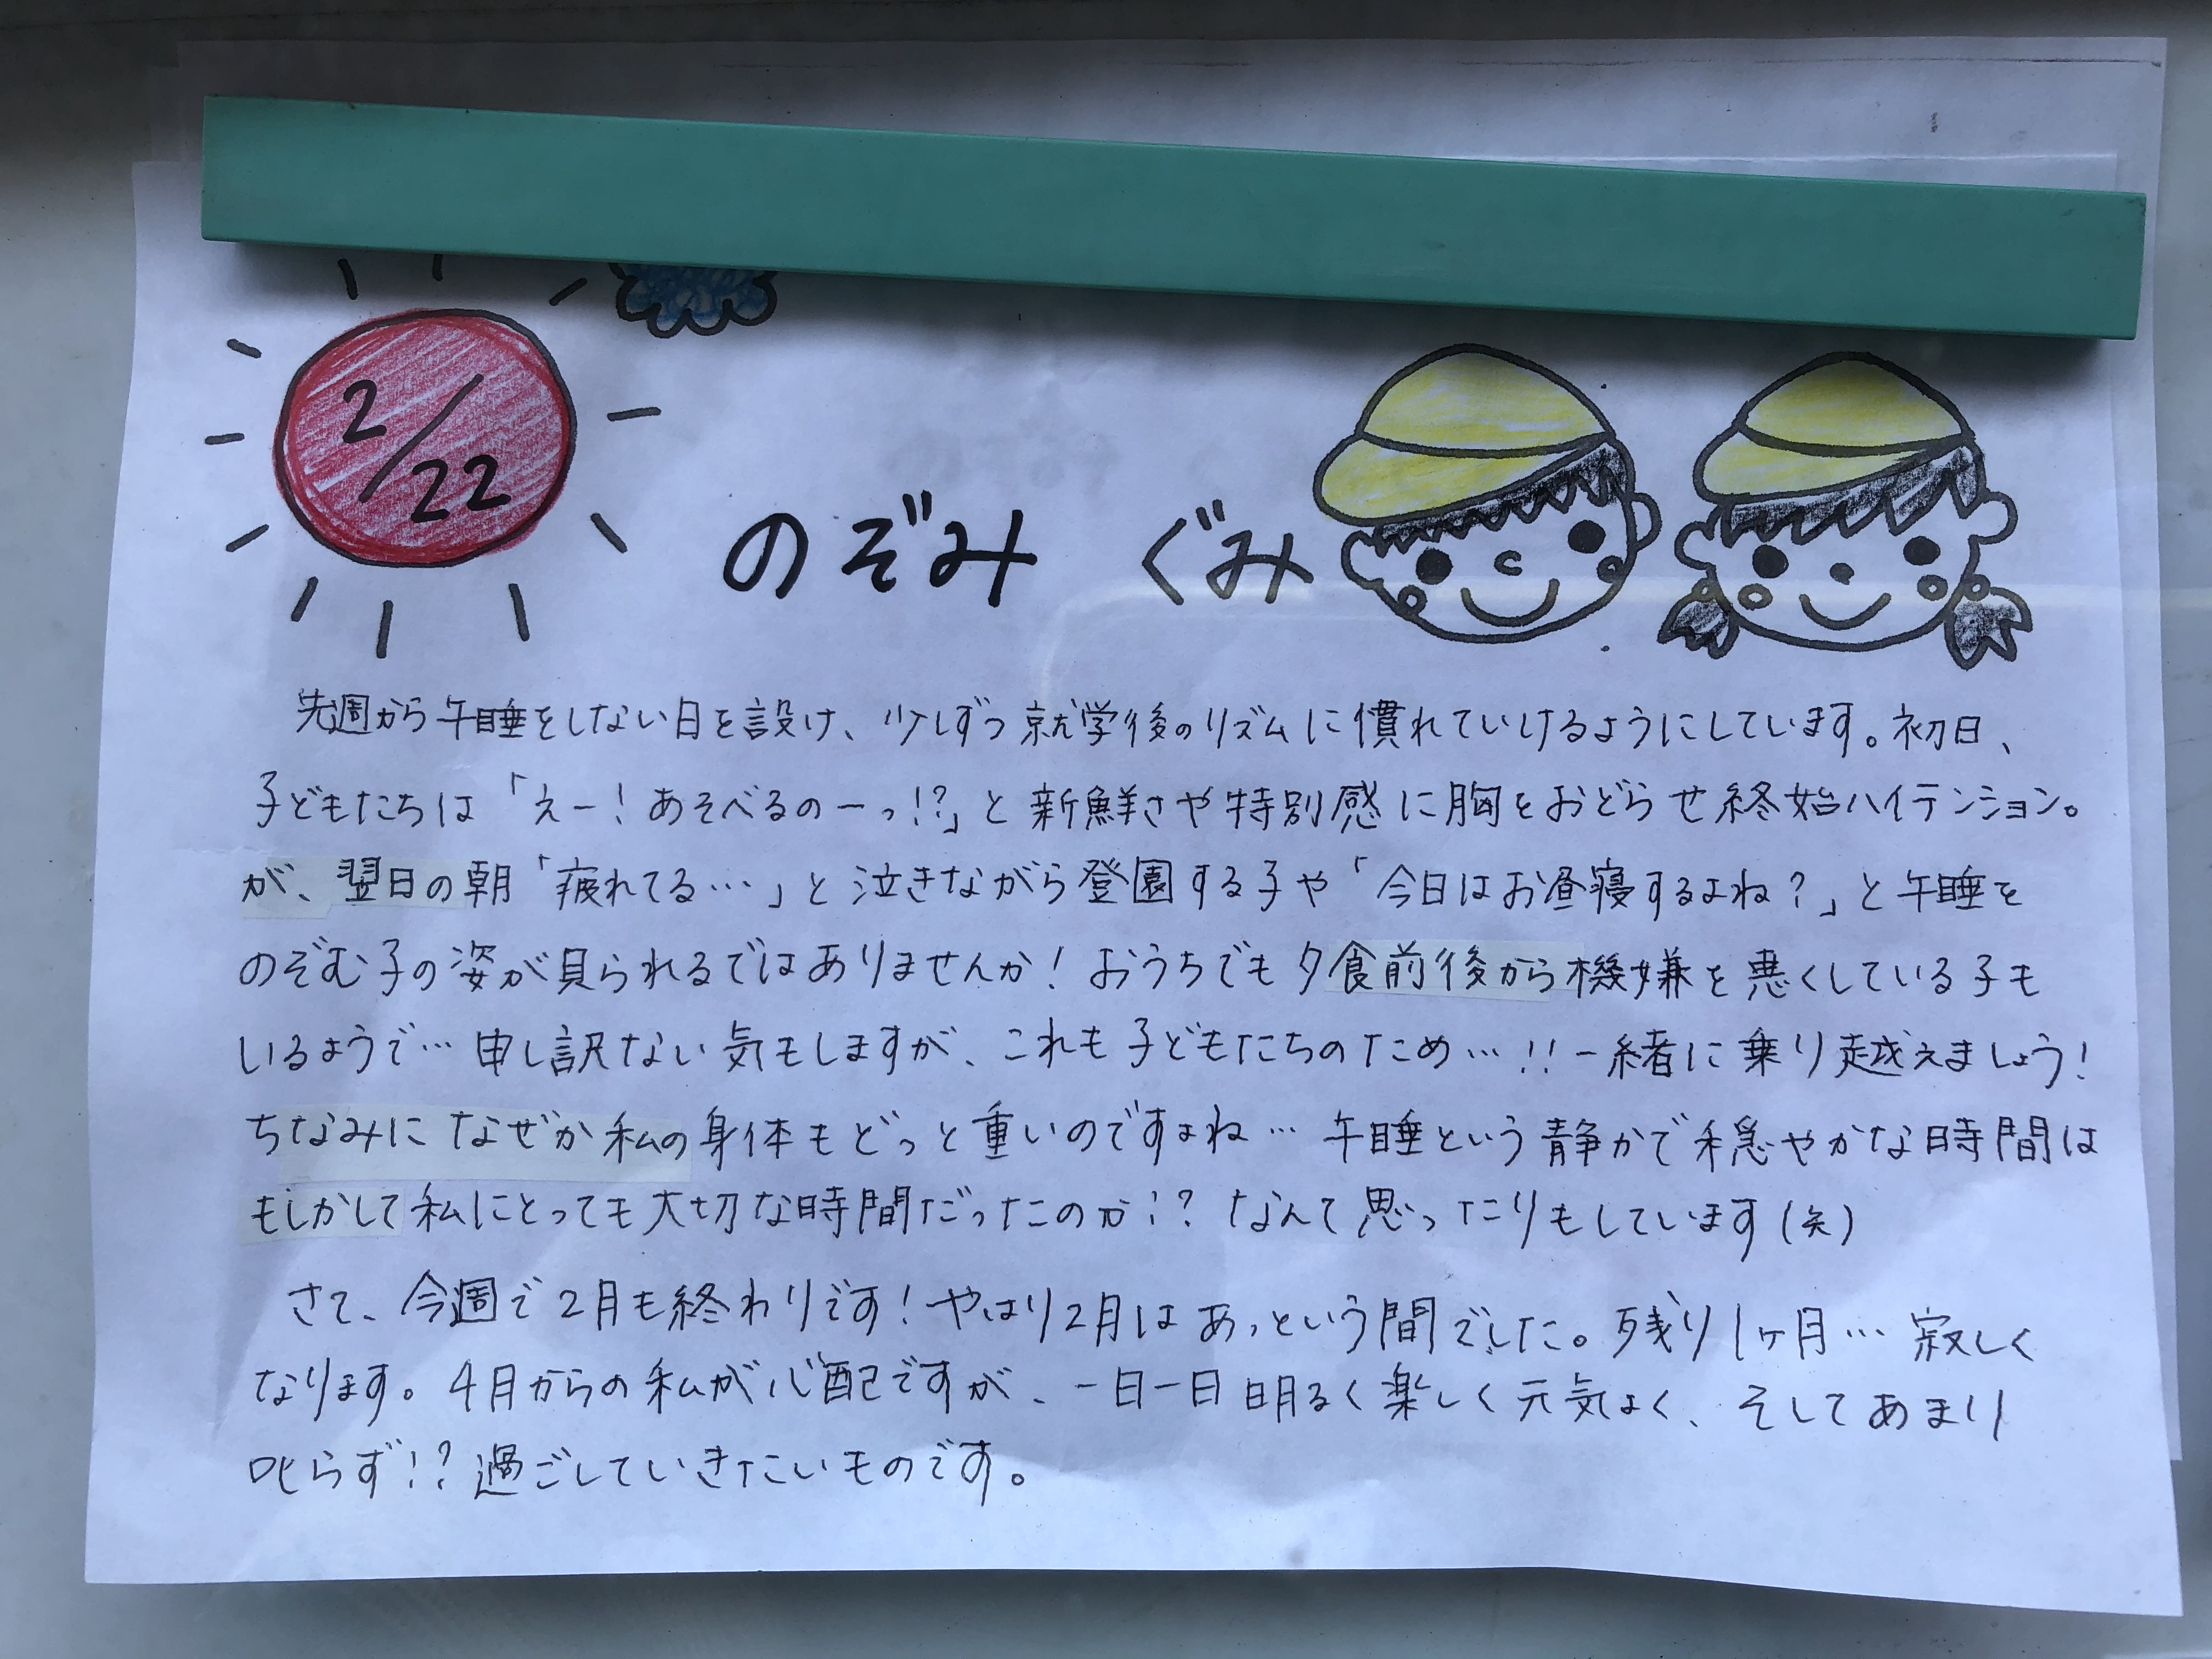 2/22
のぞみ ぐみ
先週から午睡をしない日を設け、少しずつ就学後のリズムに慣れていけるようにしています。初日、
子どもたちは「えー！あそべるのーっ!?」と新鮮さや特別感に胸をおどらせ終始ハイテンション。
が、翌日の朝「疲れてる…」と泣きながら登園する子や「今日はお昼寝するよね？」と午睡を
のぞむ子の姿が見られるではありませんか！おうちでも夕食前後から機嫌を悪くしている子も
いるようで…申し訳ない気もしますが、これも子どもたちのため…!!一緒に乗り越えましょう！
ちなみになぜか私の身体もどっと重いのですよね…午睡という静かで穏やかな時間は
もしかして私にとっても大切な時間だったのか!?なんて思ったりもしています(笑)
さて、今週で2月も終わりです！やはり2月はあっという間でした。残り1ヶ月…寂しく
なります。4月からの私が心配ですが、一日一日明るく楽しく元気よく、そしてあまり
叱らず!?過ごしていきたいものです。